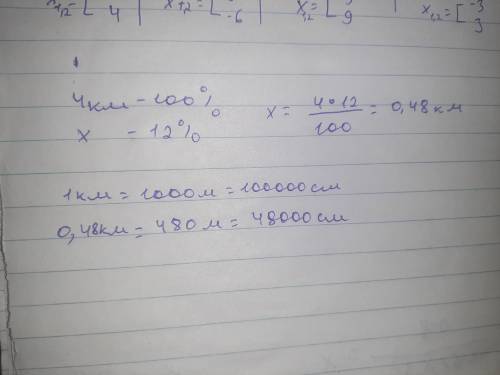 x1,2 = [ 4 | x1,2 = [ -6 | x1,2 = [ 9 | x1,2 = [ -3 3
4км - 100%
x - 12%
x = 4•12/100 = 0,48км
1км = 1000м = 100000см
0,48км = 480м = 48000см